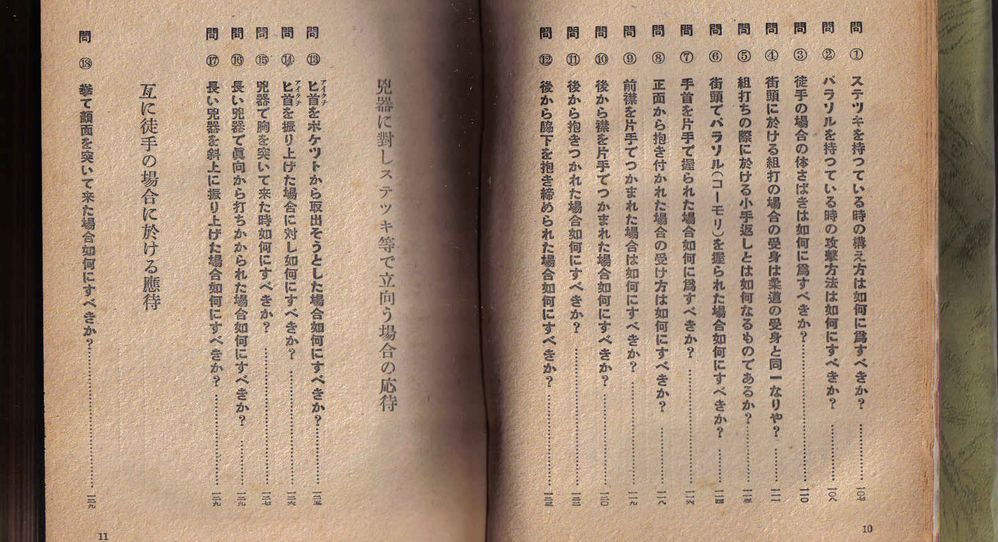 問 ① ステツキを持つている時の構え方は如何に爲すべきか?……一〇七
問 ② パラソルを持つている時の攻撃方法は如何にすべきか?……一〇八
問 ③ 徒手の場合の体さばきは如何に爲すべきか?……一一〇
問 ④ 街頭に於ける組打の場合の受身は柔道の受身と同一なりや?……一一一
問 ⑤ 組打ちの際に於ける小手返しとは如何なるものであるか?……
問 ⑥ 街頭でパラソル(コーモリ)を握られた場合如何にすべきか?……
問 ⑦ 手首を片手で握られた場合如何に爲すべきか?……
問 ⑧ 正面から抱き付かれた場合の受け方は如何にすべきか?……
問 ⑨ 前襟を片手でつかまれた場合は如何にすべきか?……一一九
問 ⑩ 後から襟を片手でつかまれた場合如何にすべきか?……一二〇
問 ⑪ 後から抱きつかれた場合如何にすべきか?……
問 ⑫ 後から脇下を抱き締められた場合如何にすべきか?……
10
兇器に對しステツキ等で立向う場合の応待
問 ⑬ ヒ首をポケツトから取出そうとした場合如何にすべきか?……
アイクチ
問 ⑭ ヒ首を振り上げた場合に対し如何にすべきか?……
アイクチ
問 ⑮ 兇器で胸を突いて来た時如何にすべきか?……
問 ⑯ 長い兇器で眞向から打ちかかられた場合如何にすべきか?……
問 ⑰ 長い兇器を斜上に振り上げた場合如何にすべきか?……
互に徒手の場合に於ける應待
問 ⑱ 拳で顔面を突いて来た場合如何にすべきか?……
11